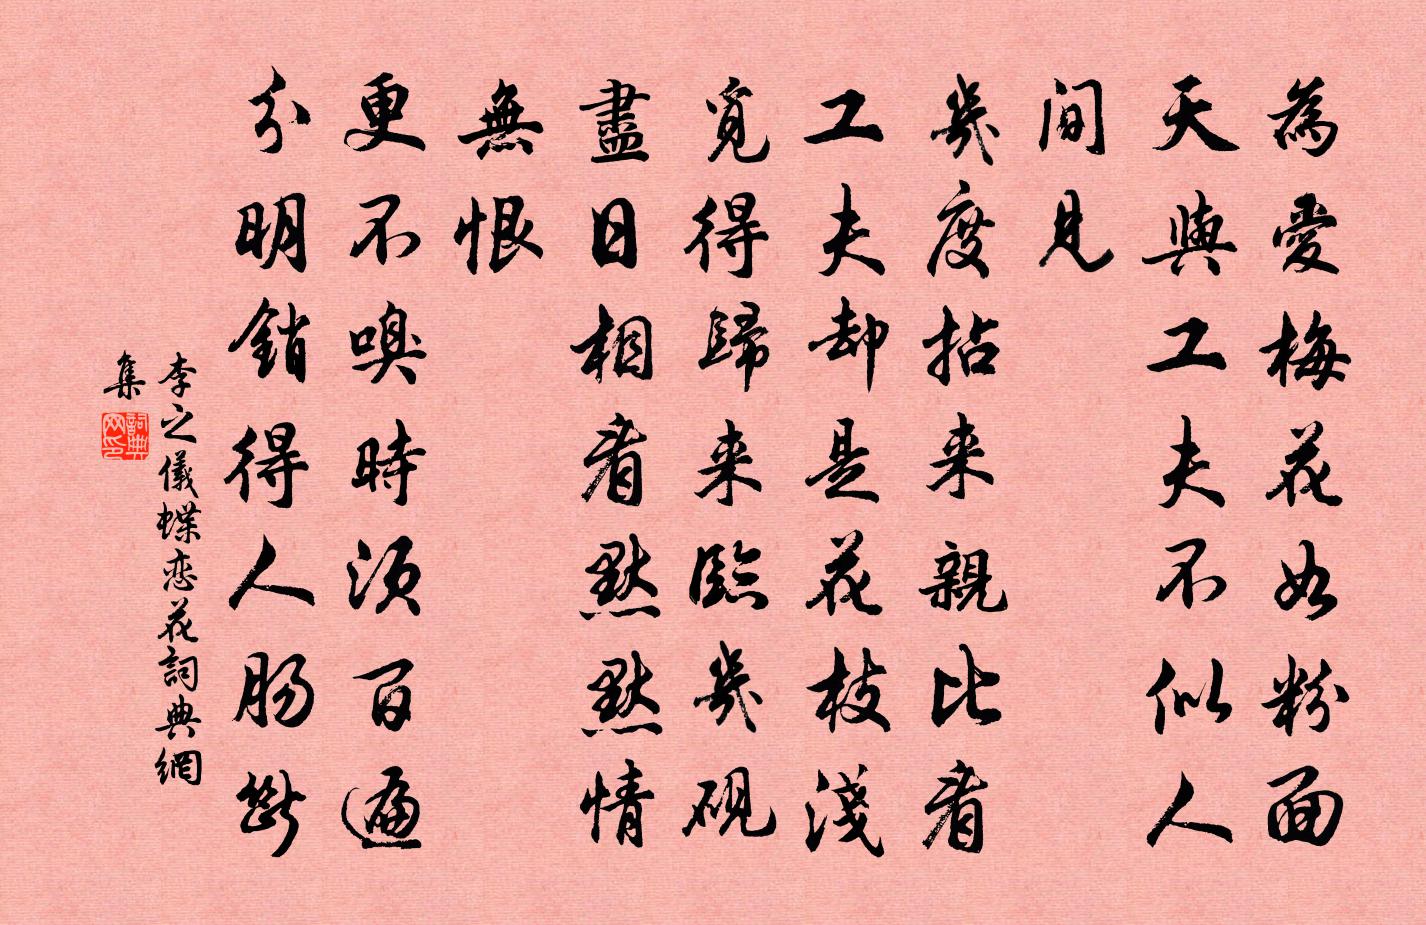 為愛梅花如粉面
天與工夫不似人
間見
幾度拈来親比看
工夫却是花枝淺
覓得歸来臨幾硯
盡日相看默默情
無恨
更不嗅時須百遍
分明銷得人腸斷
李之儀蝶恋花詞典網
集
詞典网印